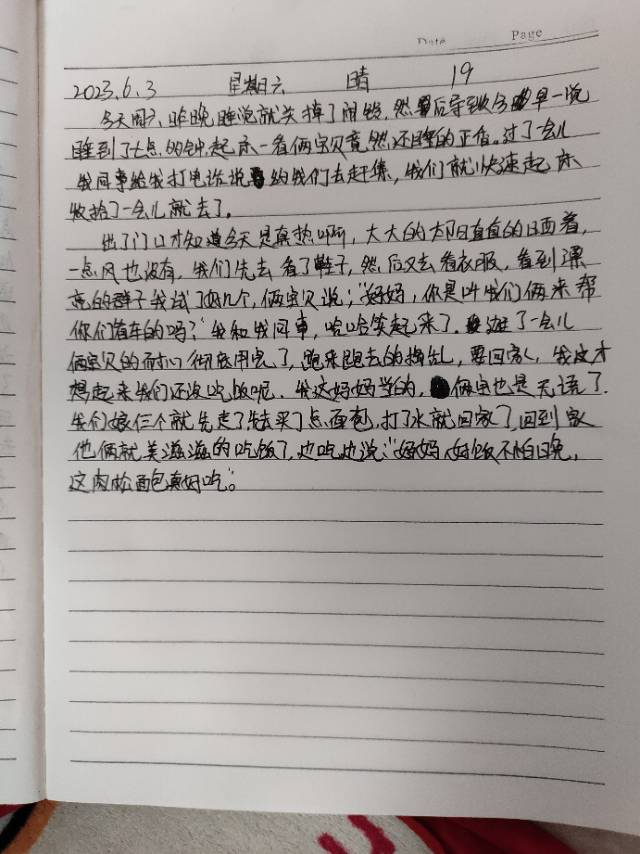 Date Page
2023.6.3 星期六 晴 19
今天周六,昨晚睡觉就关掉了闹铃,然后导致今早一觉
睡到了七点的钟,起床一看俩宝贝竟然还睡的正香。过了一会儿
我同事给我打电话说约我们去赶集,我们就快速起床
收拾了一会儿就去了。
出了门口才知道今天是真热啊,大大的太阳直直的晒着,
一点风也没有,我们先去看了鞋子,然后又去看衣服,看到漂
亮的裙子我试了好几个,俩宝贝说:"妈妈,你是叫我们俩来帮
你们看车的吗?"我和我同事,哈哈笑起来了.逛了一会儿
俩宝贝的耐心彻底用完了,跑来跑去的捣乱,要回家,我这才
想起来我们还没吃饭呢.我这妈妈当的,俩宝也是无语了.
我们娘仨个就先走了先去买了点面包,打了水就回家了,回到家
他俩就美滋滋的吃饭了,边吃边说:"妈妈,好饭不怕晚,
这肉松面包真好吃"。